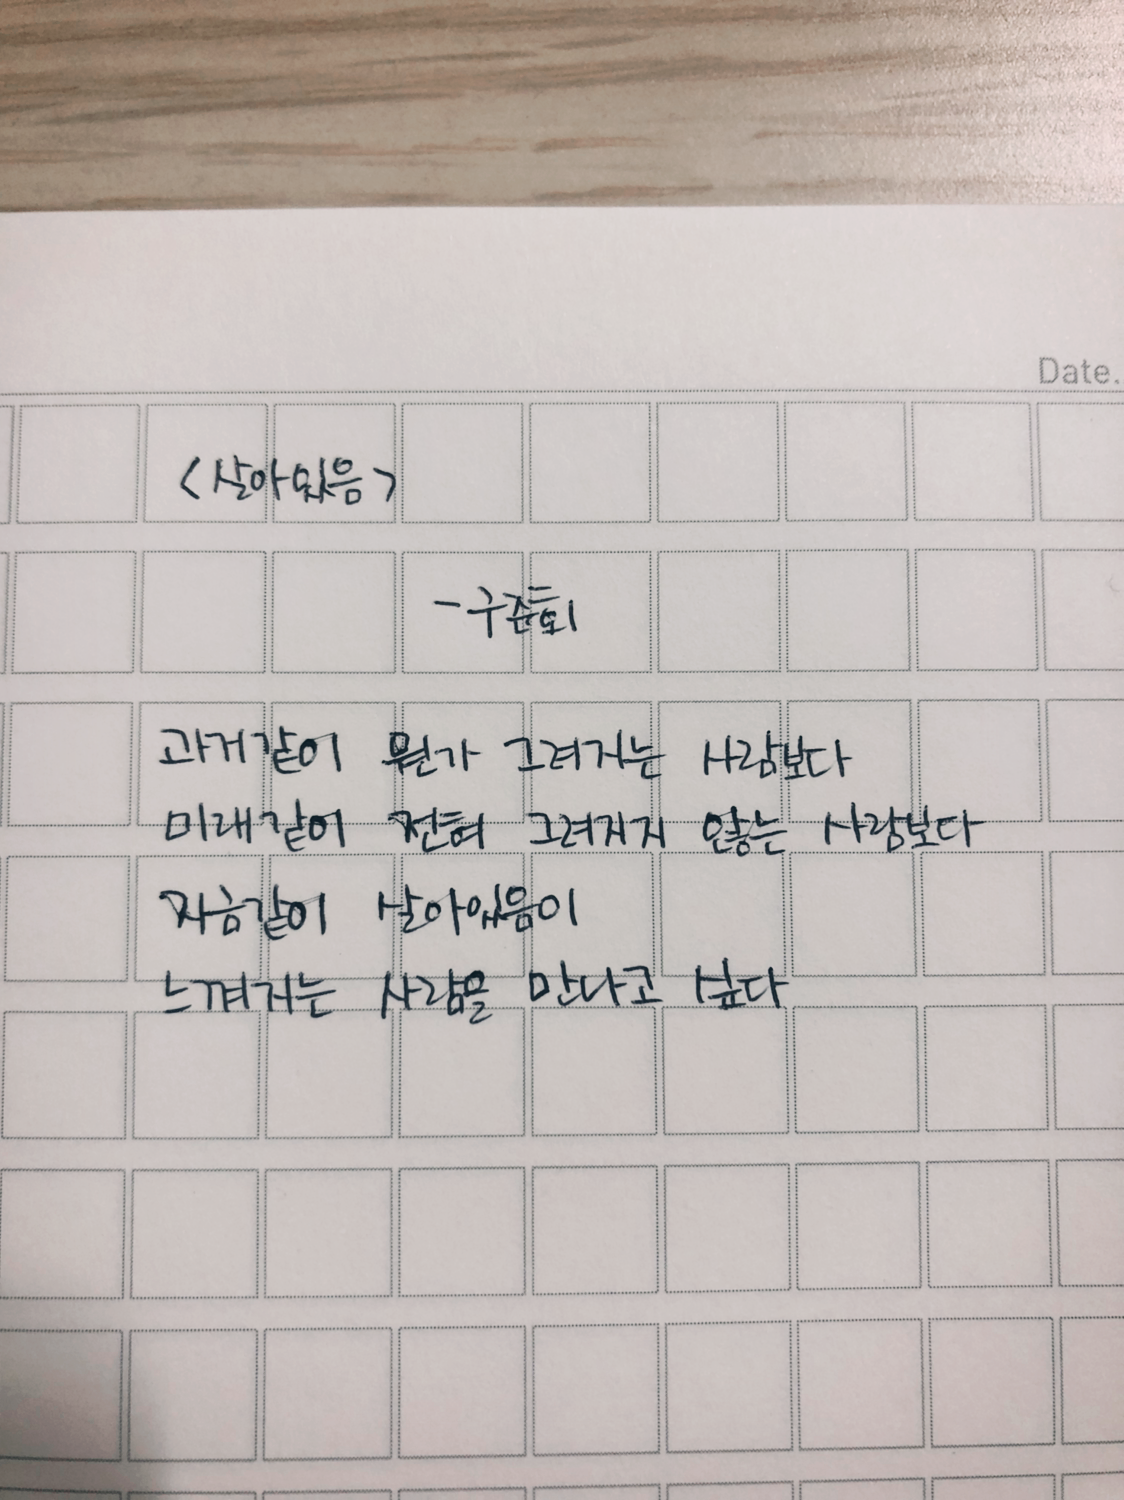 Date.
<살아있음>
-구준회
과거같이 뭔가 그려지는 사람보다
미래같이 전혀 그려지지 않는 사람보다
지금같이 살아있음이
느껴지는 사람을 만나고 싶다